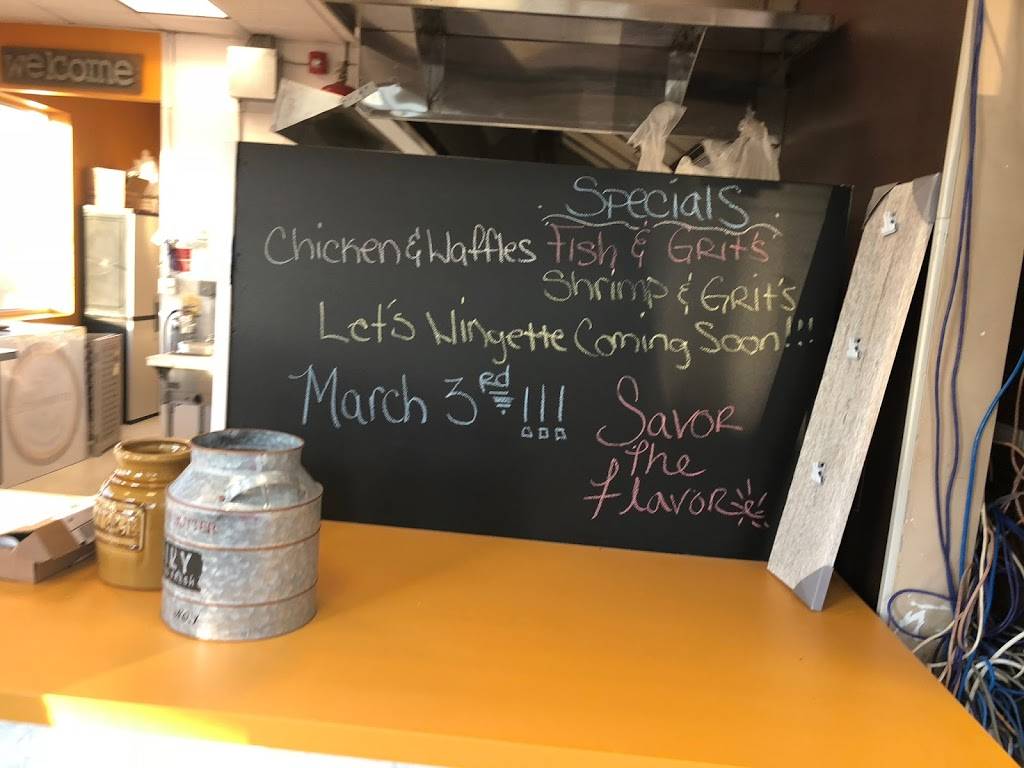 welcome
Specials
Chicken & Waffles Fish & Grit's
Shrimp & Grit's
Let's Wingette Coming Soon!!!
March 3rd!!!
Savor
The
Flavor
NO.1